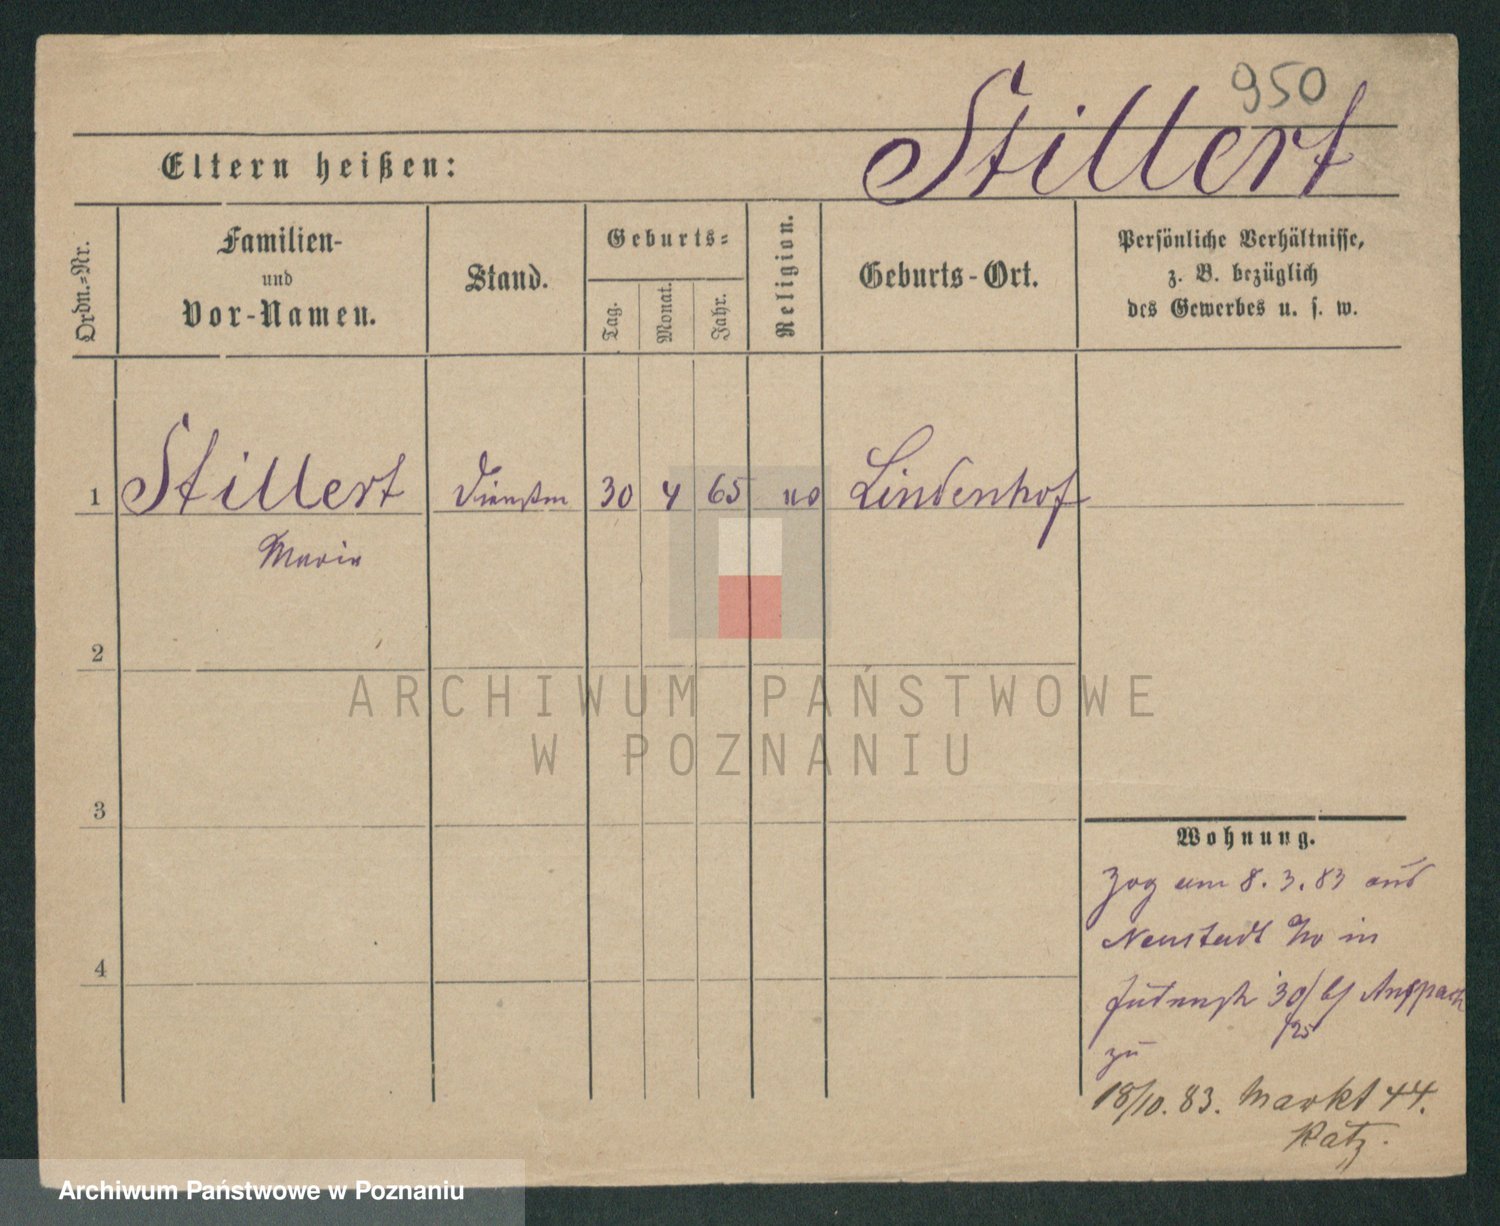 950
Stillert
Eltern heißen:
Ordn.-Nr.
Familien-
und
Vor-Namen.
Stand.
Geburts-
Tag.
Monat.
Jahr.
Religion.
Geburts-Ort.
Persönliche Verhältnisse,
z. B. bezüglich
des Gewerbes u. s. w.
1 Stillert Dienstm 30 4 65 Lindenhof
Maria
2
ARCHIWUM PAŃSTWOWE
W POZNANIU
3
4
Wohnung.
Zog am 8. 3. 83 aus
Neustadt in
Judenstr 30/ b/ Anspach
/25
zu
18/10. 83. Markt 44.
Katz.
Archiwum Państwowe w Poznaniu